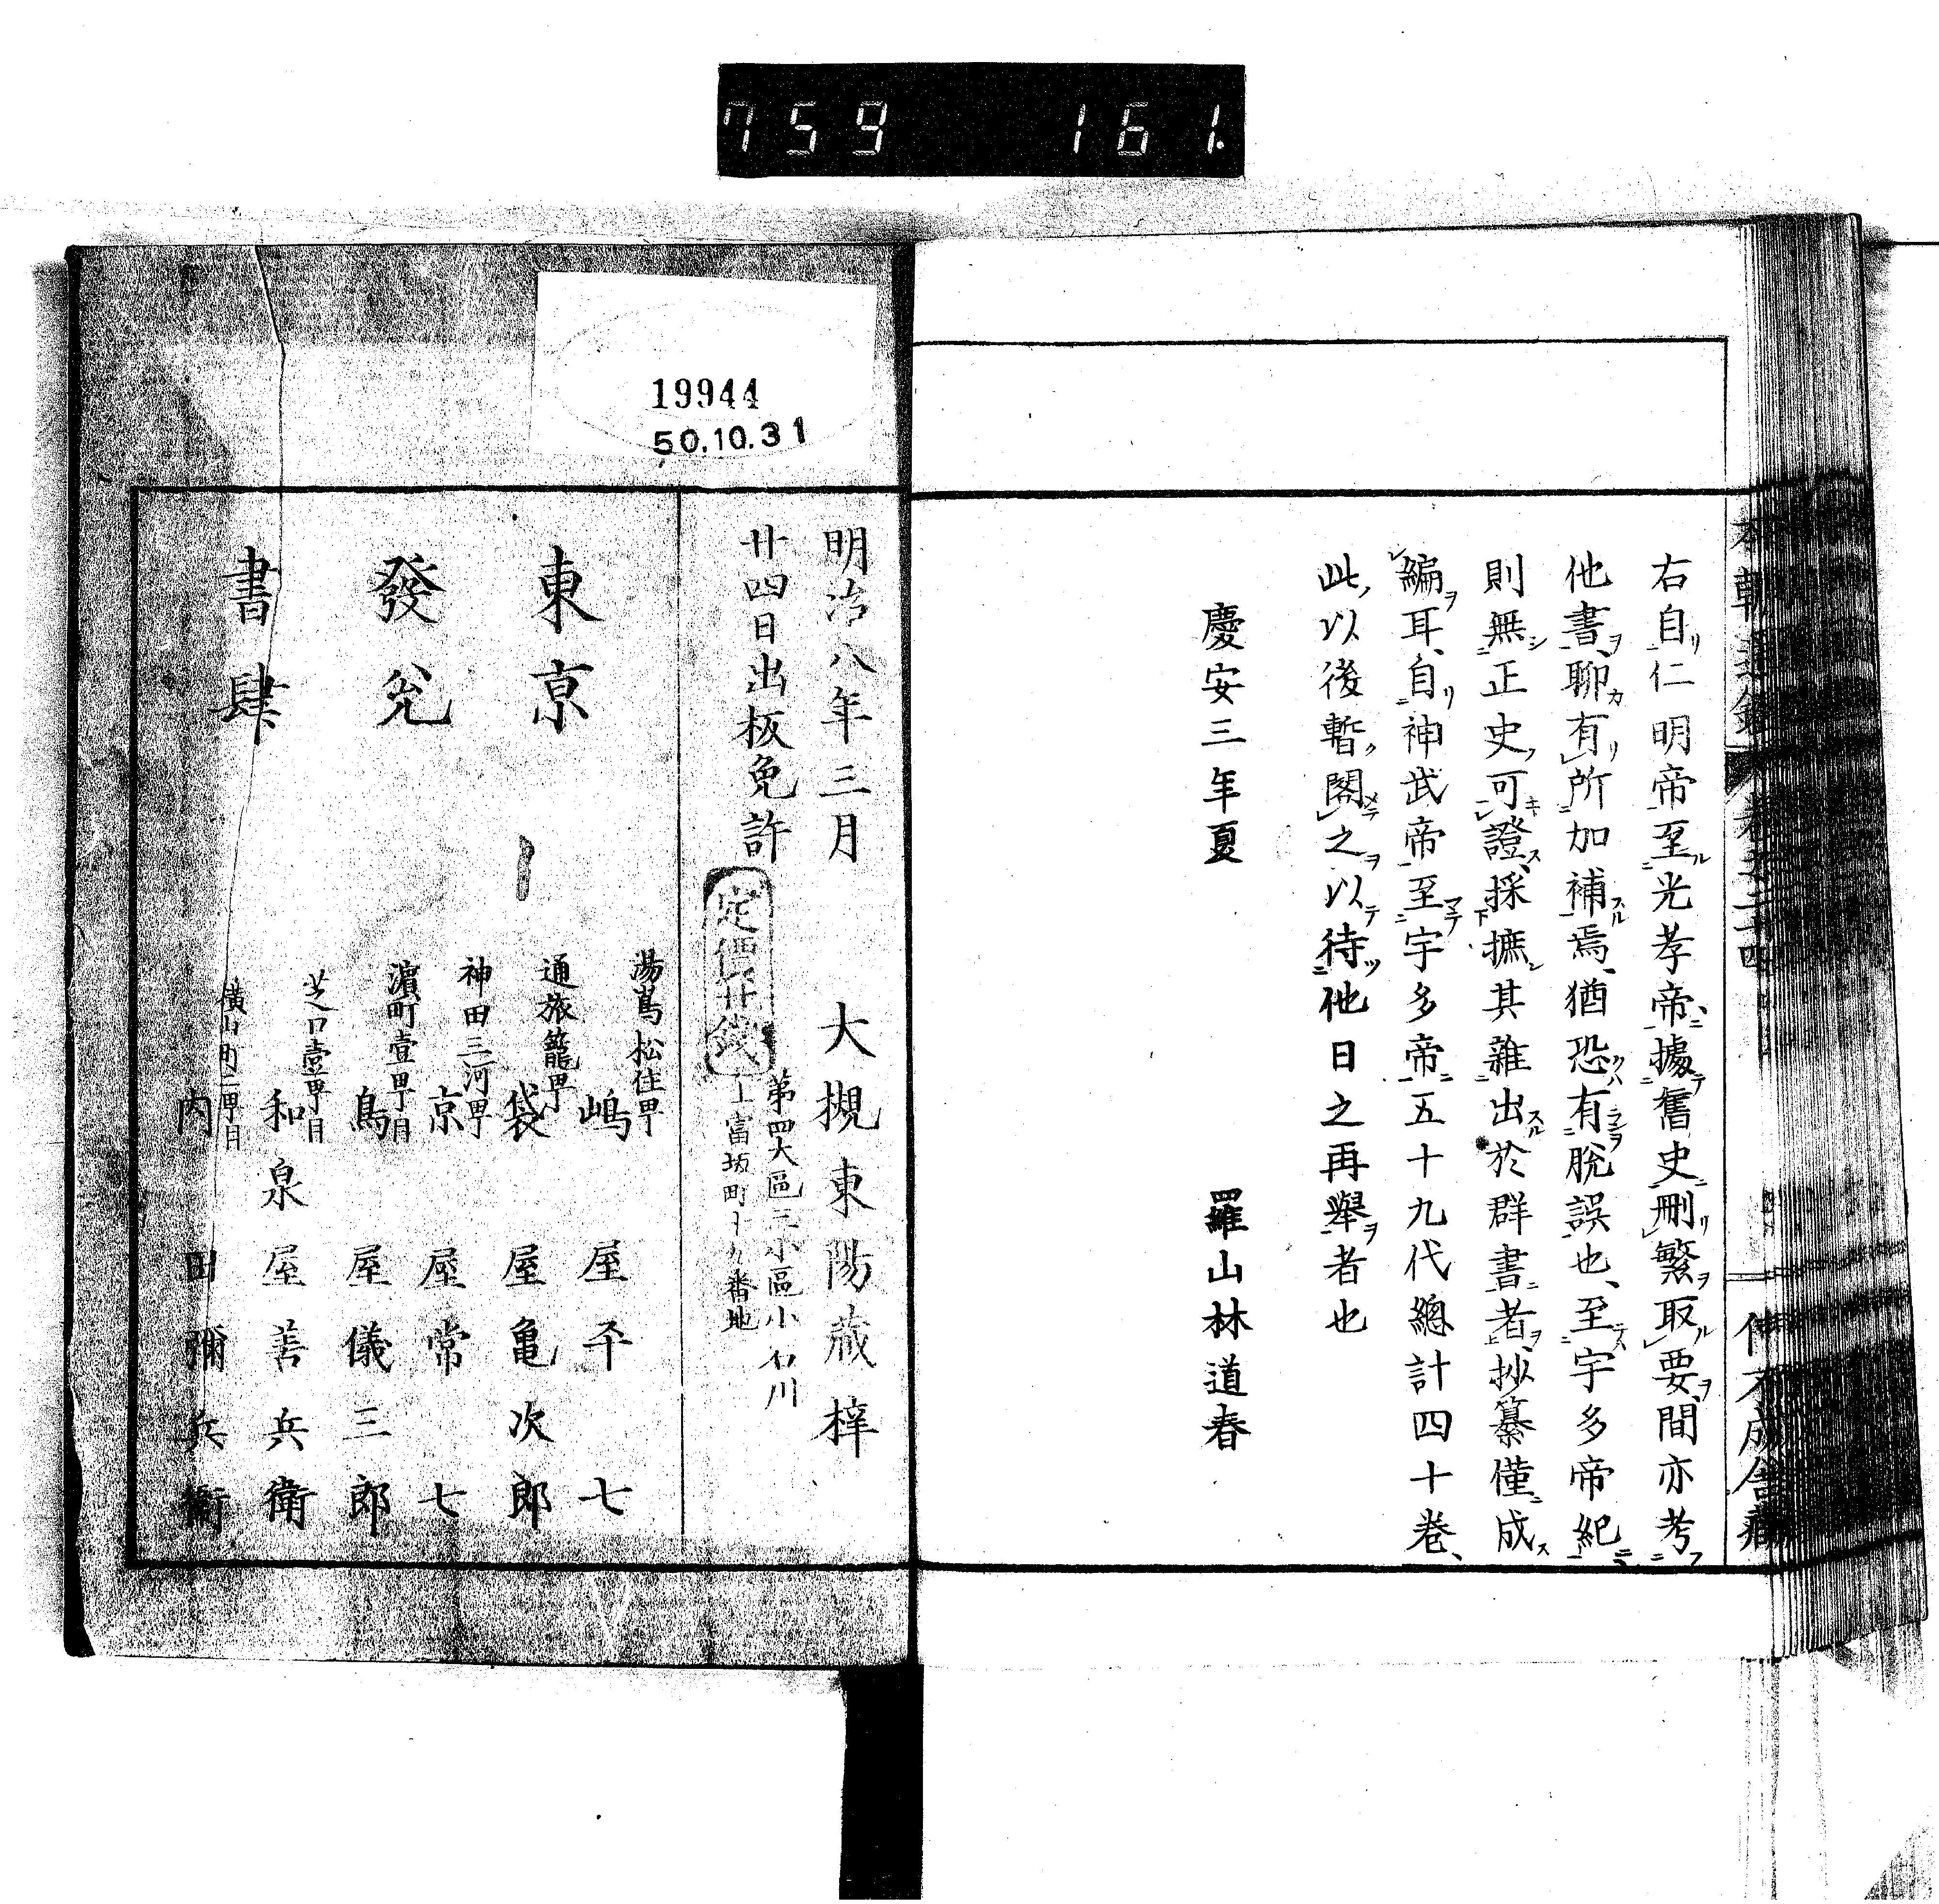 759 161.
右自リ仁明帝至ル光孝帝ニ、據テ舊史ニ刪リ繁ヲ取ル要ヲ、間亦考フ
他書ヲ、聊カ有リ所加補スル焉、猶恐クハ有ランヲ脫誤也、至テハ宇多帝紀ニ
則無シ正史ノ可キ證ス、採摭シ其雜出スル於群書ニ者ヲ、抄纂僅ニ成ス
編ヲ耳、自リ神武帝至マテ宇多帝ニ五十九代總計四十卷、
此ノ以後暫ク閣メテ之ヲ以テ待ツ他日之再舉ヲ者也
慶安三年夏 羅山林道春
19944
50.10.31
明治八年三月 大槻東陽蔵梓
廿四日出板免許
第四大區三小區小石川
富坂町十九番地
東京
發兌
書肆
湯嶌松住町 嶋屋平七
通旅籠町 袋屋亀次郎
神田三河町 京屋常七
濵町壹町目 鳥屋儀三郎
芝口壹町目 和泉屋善兵衛
横山町二町目 内田彌兵衛